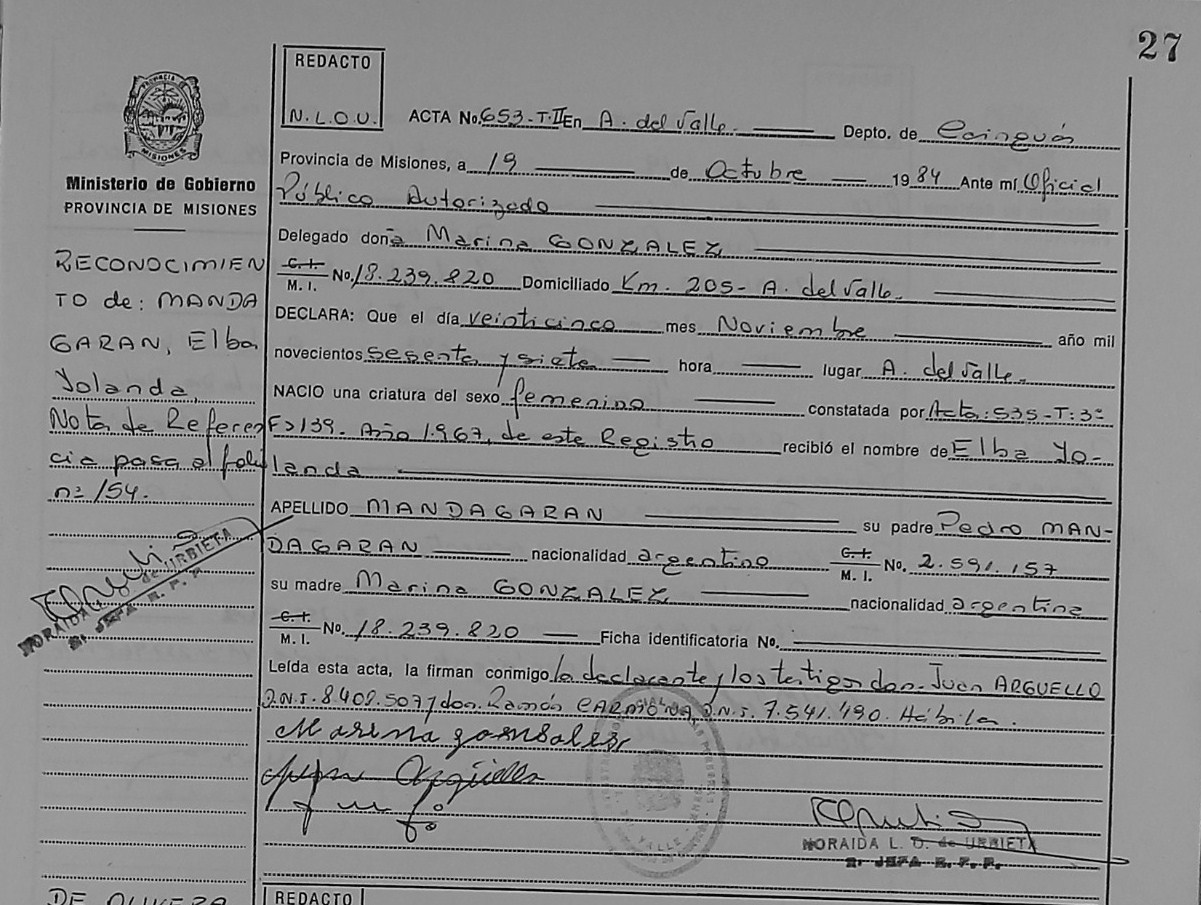 27
REDACTO
N.L.O.U.
PROVINCIA DE
MISIONES
Ministerio de Gobierno
PROVINCIA DE MISIONES
RECONOCIMIEN
TO de: MANDA
GARAN, Elba
Yolanda.
Nota de Referen
cia pasa al folio
nº 154.
NORAIDA de URBIETA
2º JEFA R.P.P.
ACTA No. 653-T-II En A. del Valle. Depto. de Cainguás
Provincia de Misiones, a 19 de Octubre 1984 Ante mí Oficial
Público Autorizado
Delegado doña Marina GONZALEZ
C.I. M.I. No. 18.239.820 Domiciliado Km. 205- A. del Valle.
DECLARA: Que el día veinticinco mes Noviembre año mil
novecientos sesenta y siete hora lugar A. del Valle.
NACIO una criatura del sexo femenino constatada por Acta: 535-T:3º
Fº 139. Año 1.967, de este Registro recibió el nombre de Elba Yo-
landa
APELLIDO MANDAGARAN su padre Pedro MAN-
DAGARAN nacionalidad argentino C.I. M.I. No. 2.591.157
su madre Marina GONZALEZ nacionalidad argentina
C.I. M.I. No. 18.239.820 Ficha identificatoria No.
Leída esta acta, la firman conmigo la declarante y los testigos don Juan ARGUELLO
D.N.I. 8.409.507 y don Ramón CARMONA D.N.I. 7.541.490. Hábiles.
Marina gonsales
Arguello
NORAIDA L. D. de URBIETA
2º JEFA R.P.P.
DE OLIVERA
REDACTO